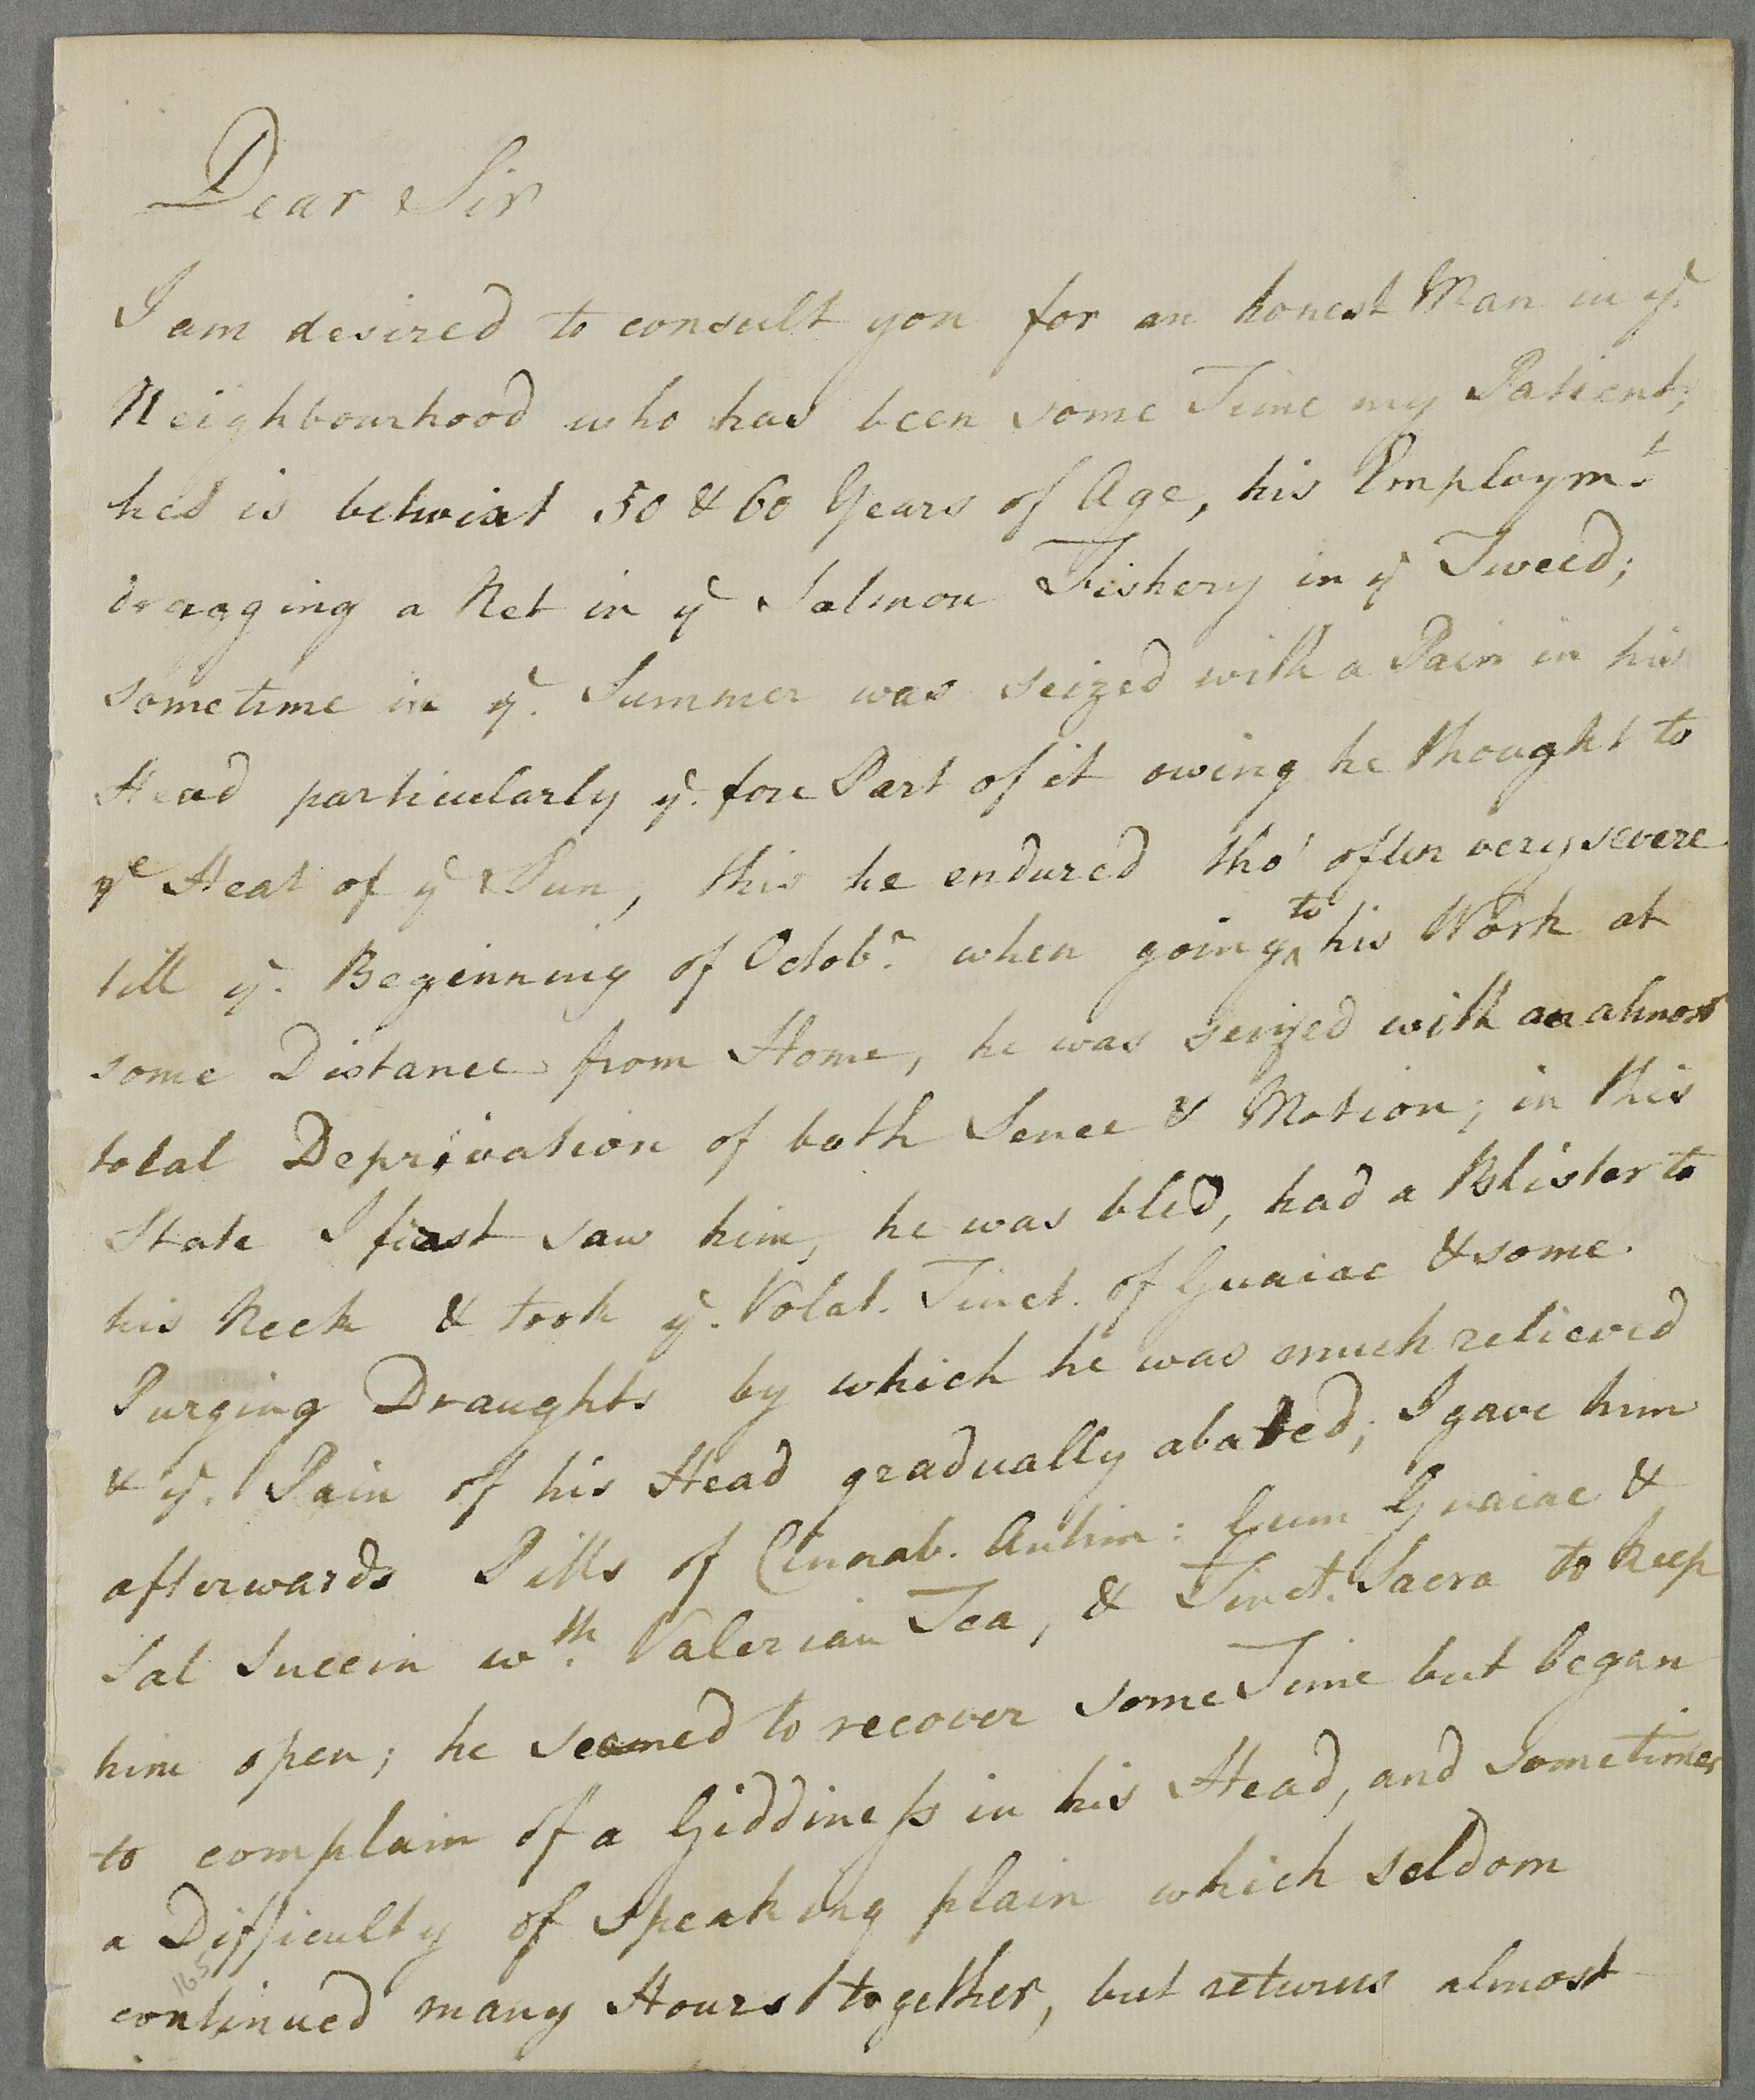 Dear Sir
I am desired to consult you for an honest Man in yͤ.
Neighbourhood who has been some Time my Patient;
he is betwixt 50 & 60 Years of Age, his Employm.ͭ
dragging a Net in yͤ Salmon Fishery in yͤ Tweed;
sometime in yͤ. Summer was seized with a Pain in his
Head particularly yͤ. fore Part of it owing he thought to
yͤ Heat of yͤ Sun, this he endured tho' often very severe
till yͤ. Beginning of Octob.ʳ when going to his Work at
some Distance from Home, he was seized with an almost
total Deprivation of both Sence & Motion; in this
State I first saw him, he was bled, had a Blister to
his Neck & took yͤ. Volat. Tinct. of Guaiac & some
Purging Draughts by which he was much relieved
& yͤ. Pain of his Head gradually abated; I gave him
afterwards Pills of Cinnab. Antim: Gum Guaiac &
Sal Succin w.ͭͪ Valerian Tea, & Tinct. Sacra to keep
him open; he seemed to recover some Time but began
to complain of a Giddiness in his Head, and sometimes
a Difficulty of speaking plain which seldom
continued many Hours together, but returns almost
165